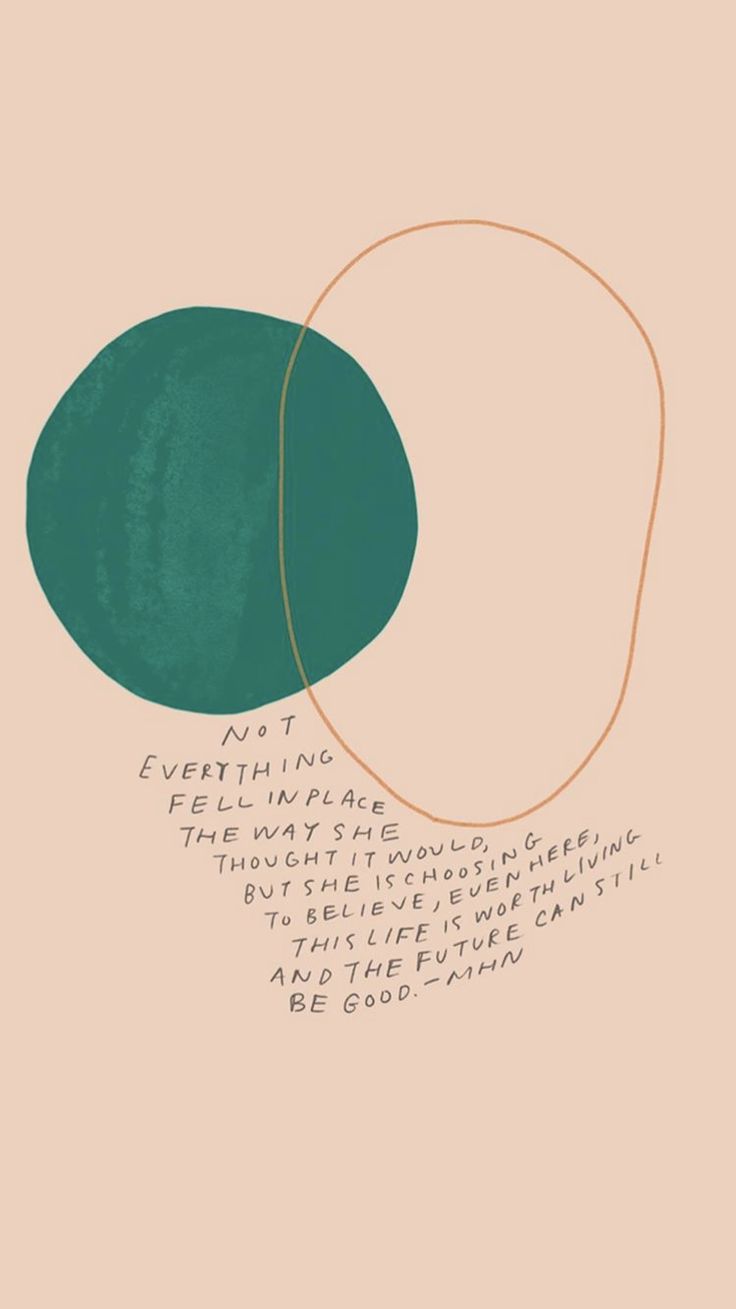 NOT
EVERYTHING
FELL IN PLACE
THE WAY SHE
THOUGHT IT WOULD,
BUT SHE IS CHOOSING
TO BELIEVE, EVEN HERE,
THIS LIFE IS WORTH LIVING
AND THE FUTURE CAN STILL
BE GOOD. – MHN